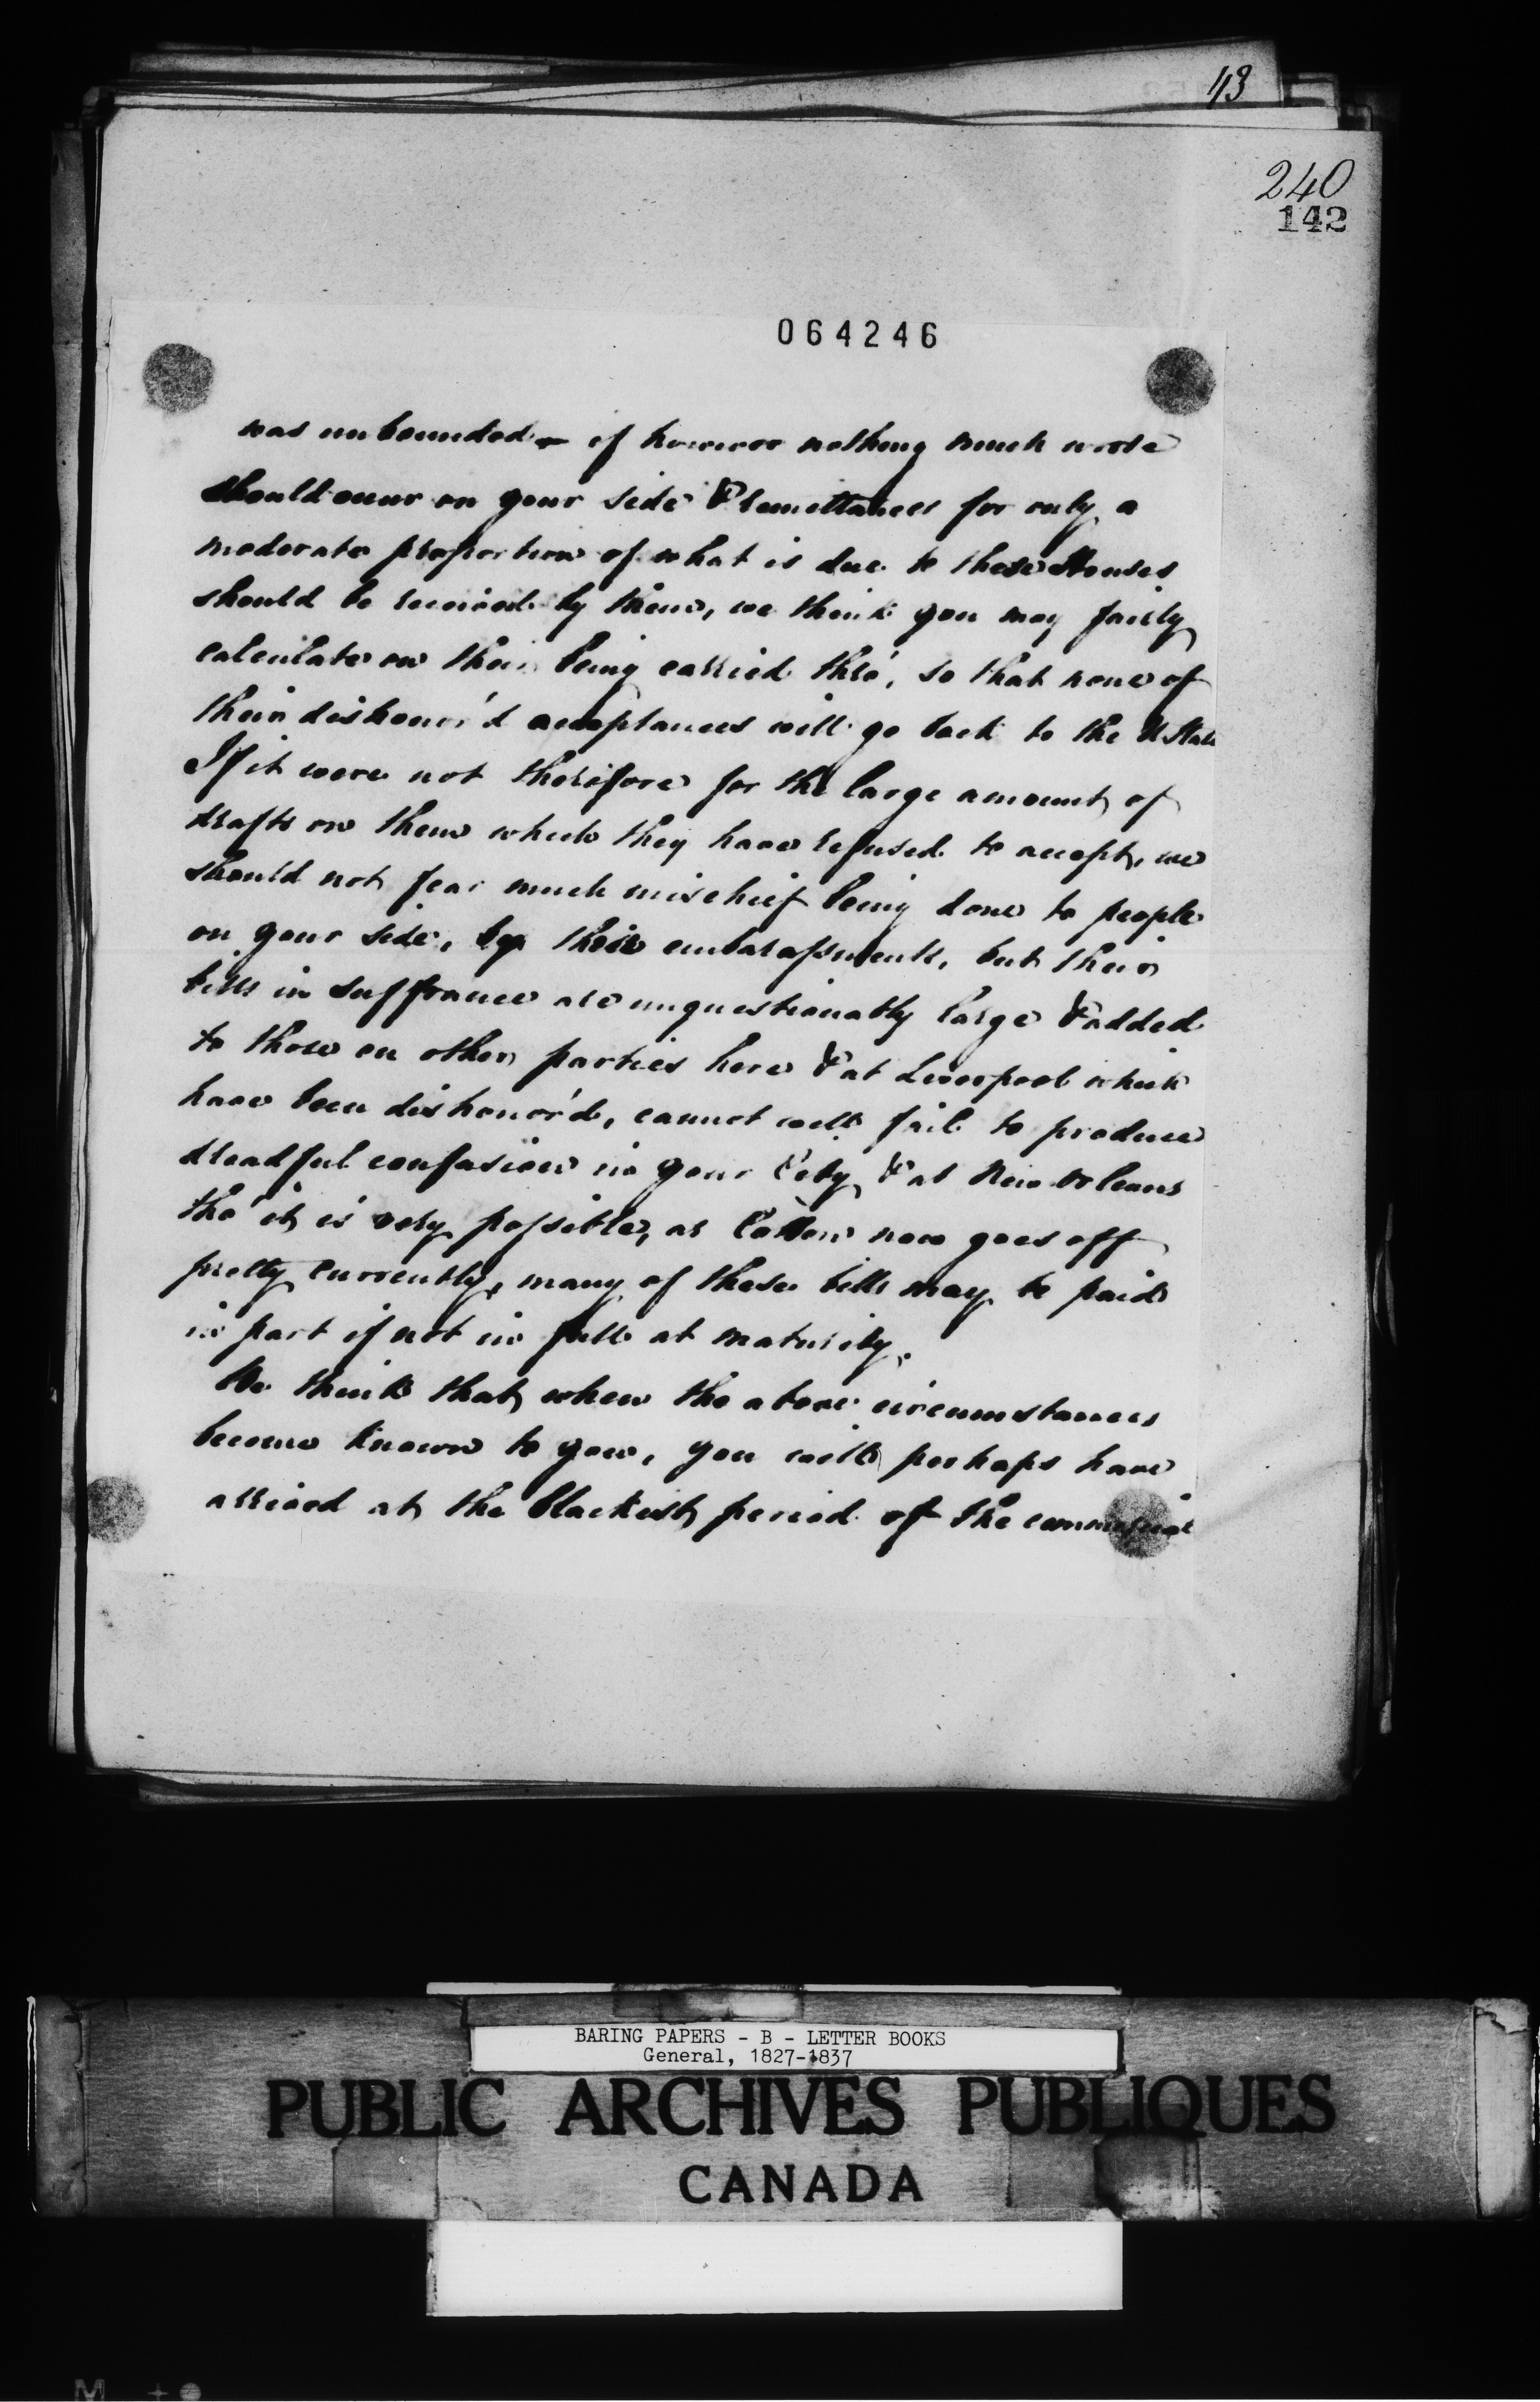 43
240
142
064246
was unbounded - if however nothing much worse
should occur on your side & remittances for only a
moderate proportion of what is due to these Houses
should be received by them, we think you may fairly
calculate on their being carried thro', so that none of
their dishonor'd acceptances will go back to the U State
If it were not therefore for the large amount of
drafts on them which they have refused to accept, we
should not fear much mischief being done to people
on your side, by their embarassments, but their
bills in sufferance are unquestionably large & added
to those on other parties here & at Liverpool which
have been dishonor'd, cannot well fail to produce
dreadful confusion in your City & at New Orleans
tho' it is very possible, as Cotton now goes off
pretty currently, many of these bills may be paid
in part if not in full at maturity.
We think that when the above circumstances
become known to you, you will perhaps have
arrived at the blackest period of the commercial
BARING PAPERS - B - LETTER BOOKS
General, 1827-1837
PUBLIC ARCHIVES PUBLIQUES
CANADA
M